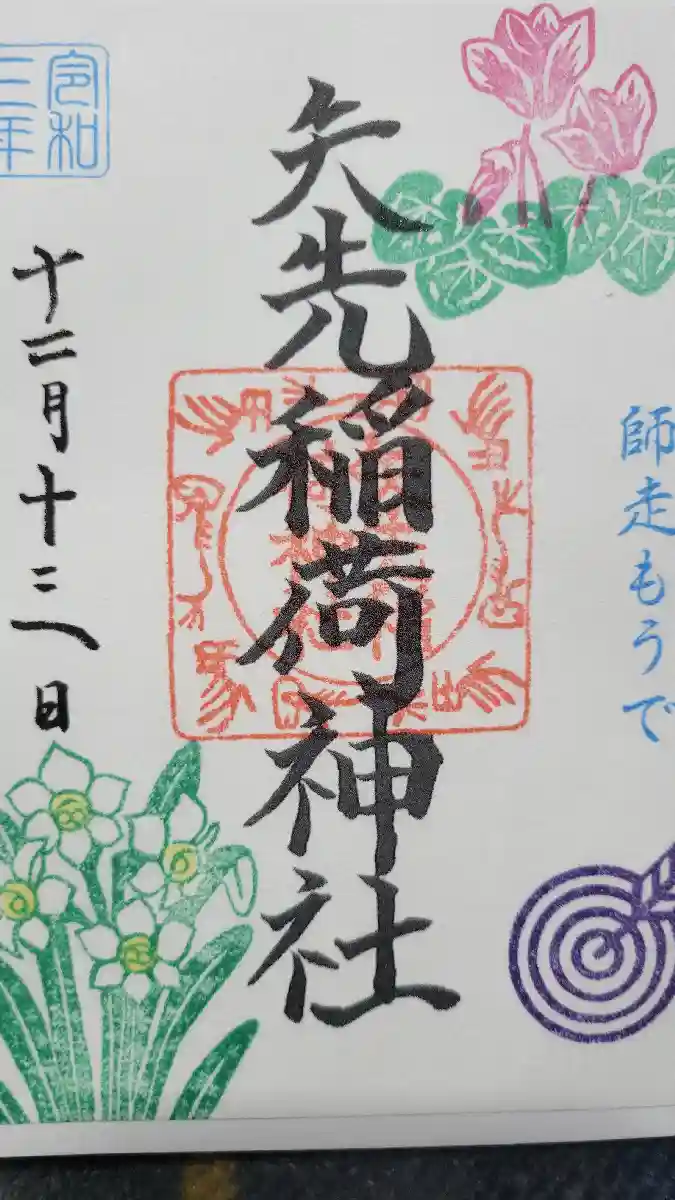 師走もうで
矢先稲荷神社
令和三年
十二月十三日